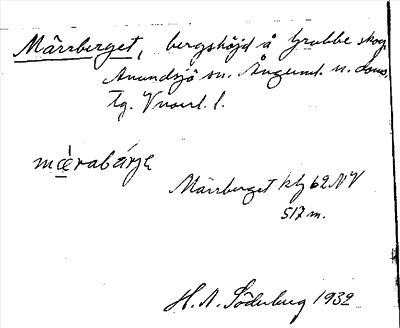 Märrberget, bergshöjd å Grubbe skog,
Anundsjö sn. Ångerml. n. doms.
tg. Vnorrl. l.
mǽrabárje
Märrberget kbl 62 NV
517 m.
H. A. Söderberg 1932